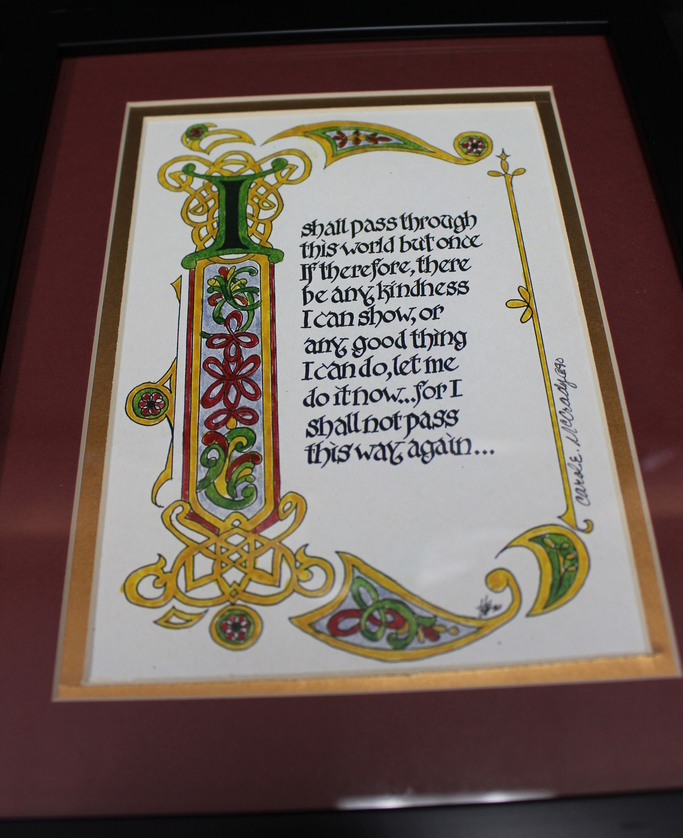 I
shall pass through
this world but once
If therefore, there
be any kindness
I can show, or
any good thing
I can do, let me
do it now...for I
shall not pass
this way again...
Carol E. McCrady